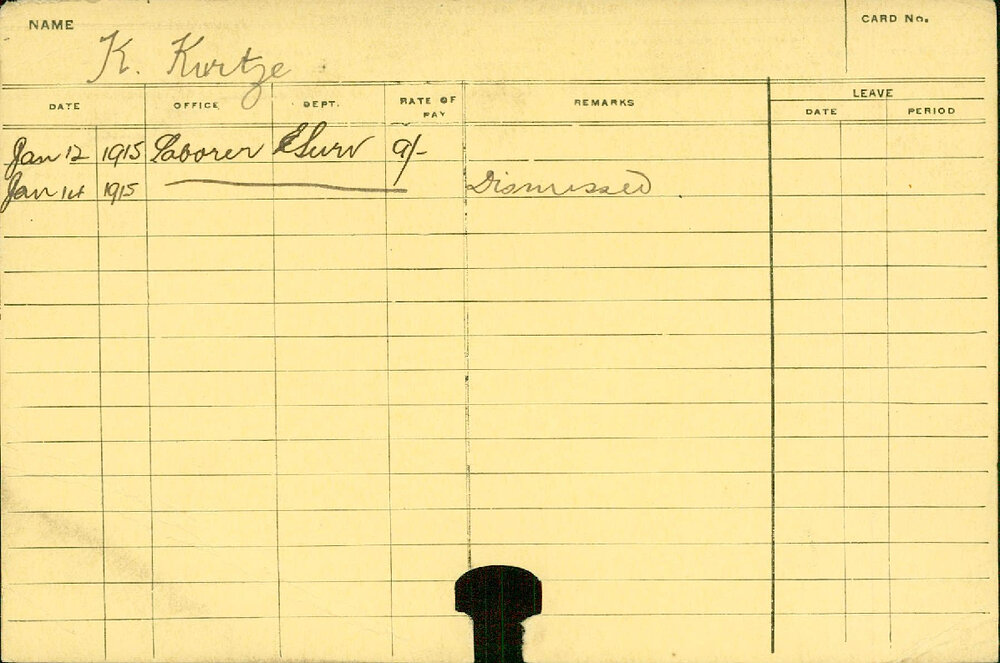 NAME
CARD No.
K. Kurtze
DATE OFFICE DEPT. RATE OF PAY REMARKS LEAVE
DATE PERIOD
Jan 12 1915 Laborer ESurv 9/-
Jan 14 1915 Dismissed